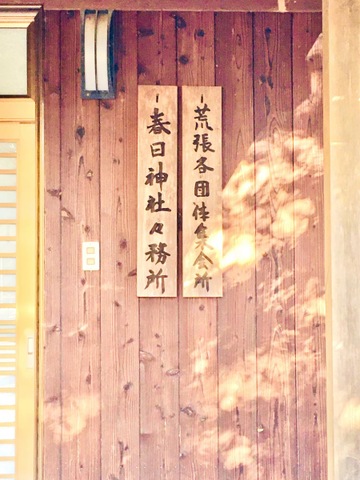 荒張各団体集会所
春日神社々務所